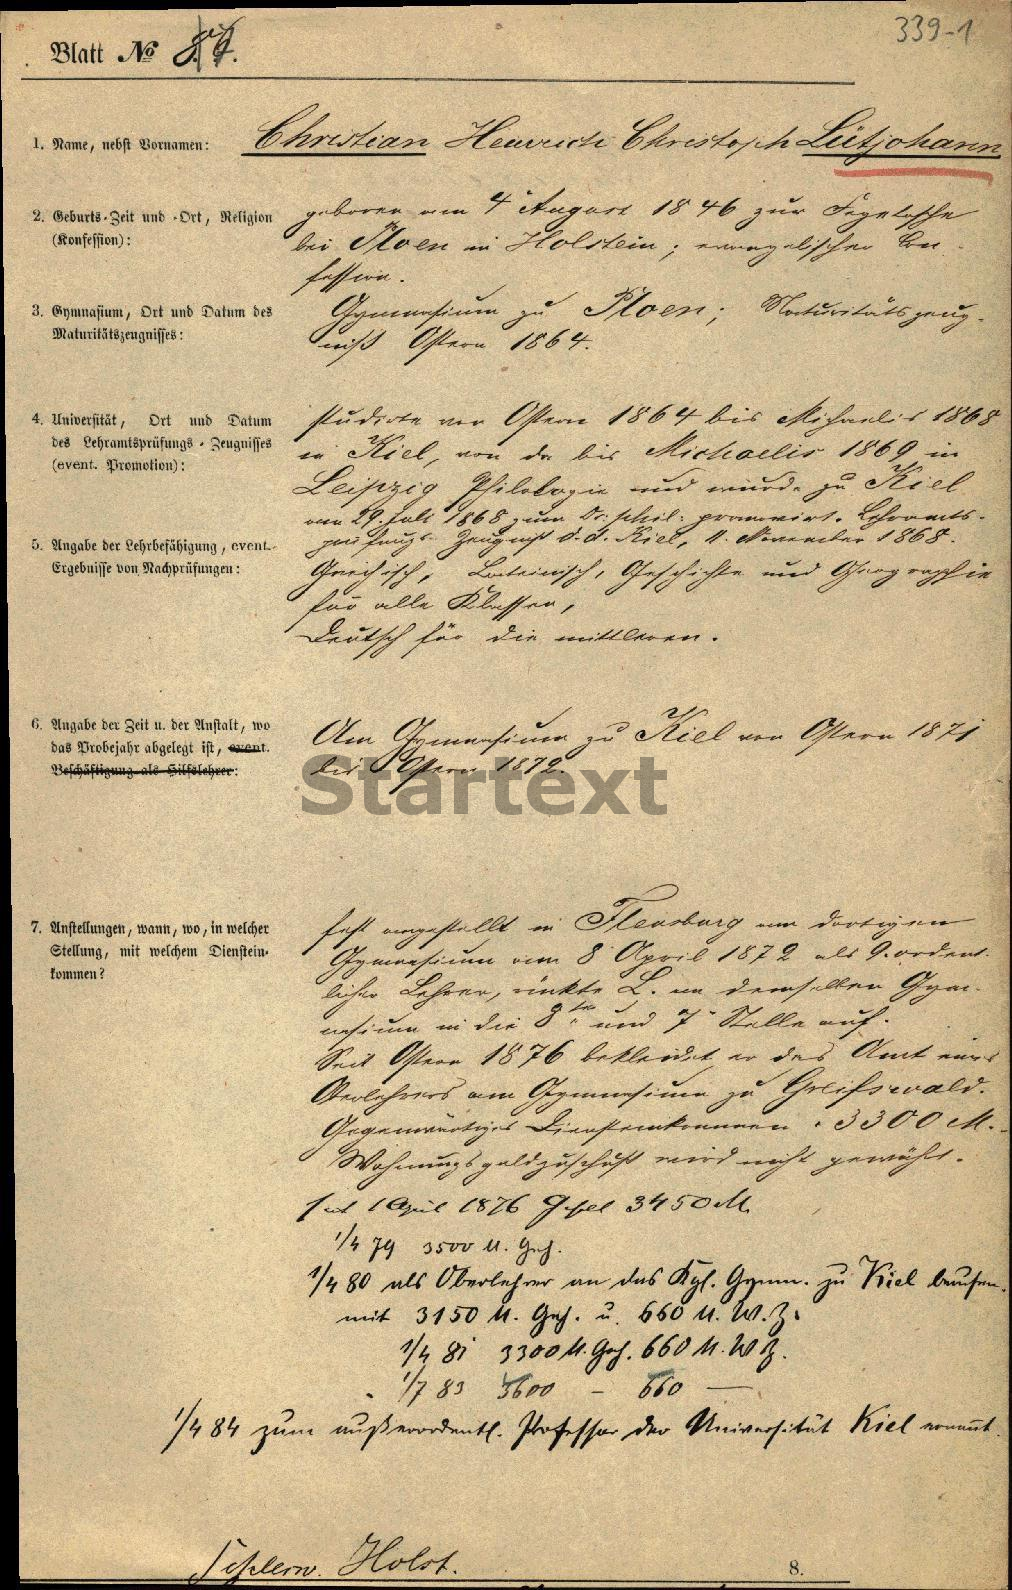 339-1
Blatt No
1. Name, nebst Vornamen: Christian Heinrich Christoph Lütjohann
2. Geburts-Zeit und -Ort, Religion (Konfession):
geboren am 4 August 1846 zur
bei Ploen in Holstein; evangelischer Con-
fession.
3. Gymnasium, Ort und Datum des Maturitätszeugnisses:
Gymnasium zu Ploen; Maturitätszeug-
niß Ostern 1864.
4. Universität, Ort und Datum des Lehramtsprüfungs-Zeugnisses (event. Promotion):
studirte von Ostern 1864 bis Michaelis 1868
in Kiel, von da bis Michaelis 1869 in
Leipzig Philologie und wurde zu Kiel
am 29. Juli 1868 zum Dr. phil. promovirt. Lehramts-
prüfungs-Zeugniß d. d. Kiel, 11. November 1868.
5. Angabe der Lehrbefähigung, event. Ergebnisse von Nachprüfungen:
Griechisch, Lateinisch, Geschichte und Geographie
für alle Klassen,
Deutsch für die mittleren.
6. Angabe der Zeit u. der Anstalt, wo das Probejahr abgelegt ist, event. Beschäftigung als Hilfslehrer:
Am Gymnasium zu Kiel von Ostern 1871
bis Ostern 1872.
Startext
7. Anstellungen, wann, wo, in welcher Stellung, mit welchem Diensteinkommen?
fest angestellt in Flensburg am dortigen
Gymnasium am 8 April 1872 als 9. ordent-
licher Lehrer, rückte L. an demselben Gym-
nasium in die 8te und 7te Stelle auf.
Seit Ostern 1876 bekleidet er das Amt eines
Oberlehrers am Gymnasium zu Greifswald.
Gegenwärtiges Diensteinkommen: 3300 M.
Wohnungsgeldzuschuß wird nicht gewährt.
seit 1 April 1876 Gehalt 3450 M.
1/4 79 3500 M. Geh.
1/4 80 als Oberlehrer an das Kgl. Gymn. zu Kiel berufen.
mit 3150 M. Geh. u. 660 M. W.Z.
1/4 81 3300 M. Geh. 660 M. W Z.
1/7 83 3600 - 660 —
1/4 84 zum außerordentl. Professor der Universität Kiel ernannt.
Schlesw. Holst.
8.